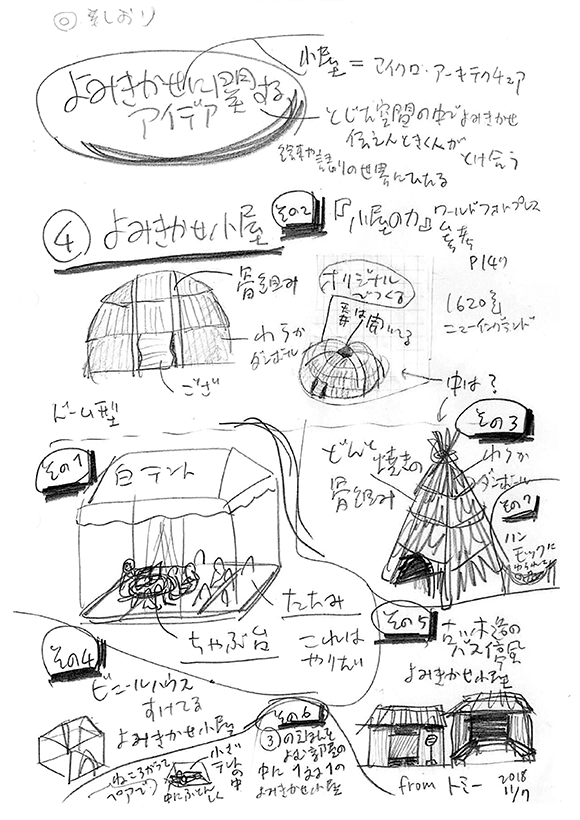 よみきかせに関する
アイデア
小屋=マイクロ・アーキテクチュア
とじた空間の中でよみきかせ
語りの世界にひたる
とけ合う
④ よみきかせ小屋
その2
『小屋の力』ワールドフォトプレス
P147
骨組み
わらか
ダンボール
ござ
ドーム型
オリジナル
でつくる
1620年
ニューイングランド
中は?
その1
白テント
たたみ
ちゃぶ台
これは
やりたい
その3
どんと焼きの
骨組み
わらか
ダンボール
その7
ハン
モックに
その4
ビニールハウス
すけてる
よみきかせ小屋
ねころがって
ペアで
小さな
テントの
中
中にふとん
しく
その5
古い木造の
バス停風
よみきかせ小屋
その6
③のえほんを
よむ部屋の
中に1つ1つの
よみきかせ小屋
from トミー 2018
11/7